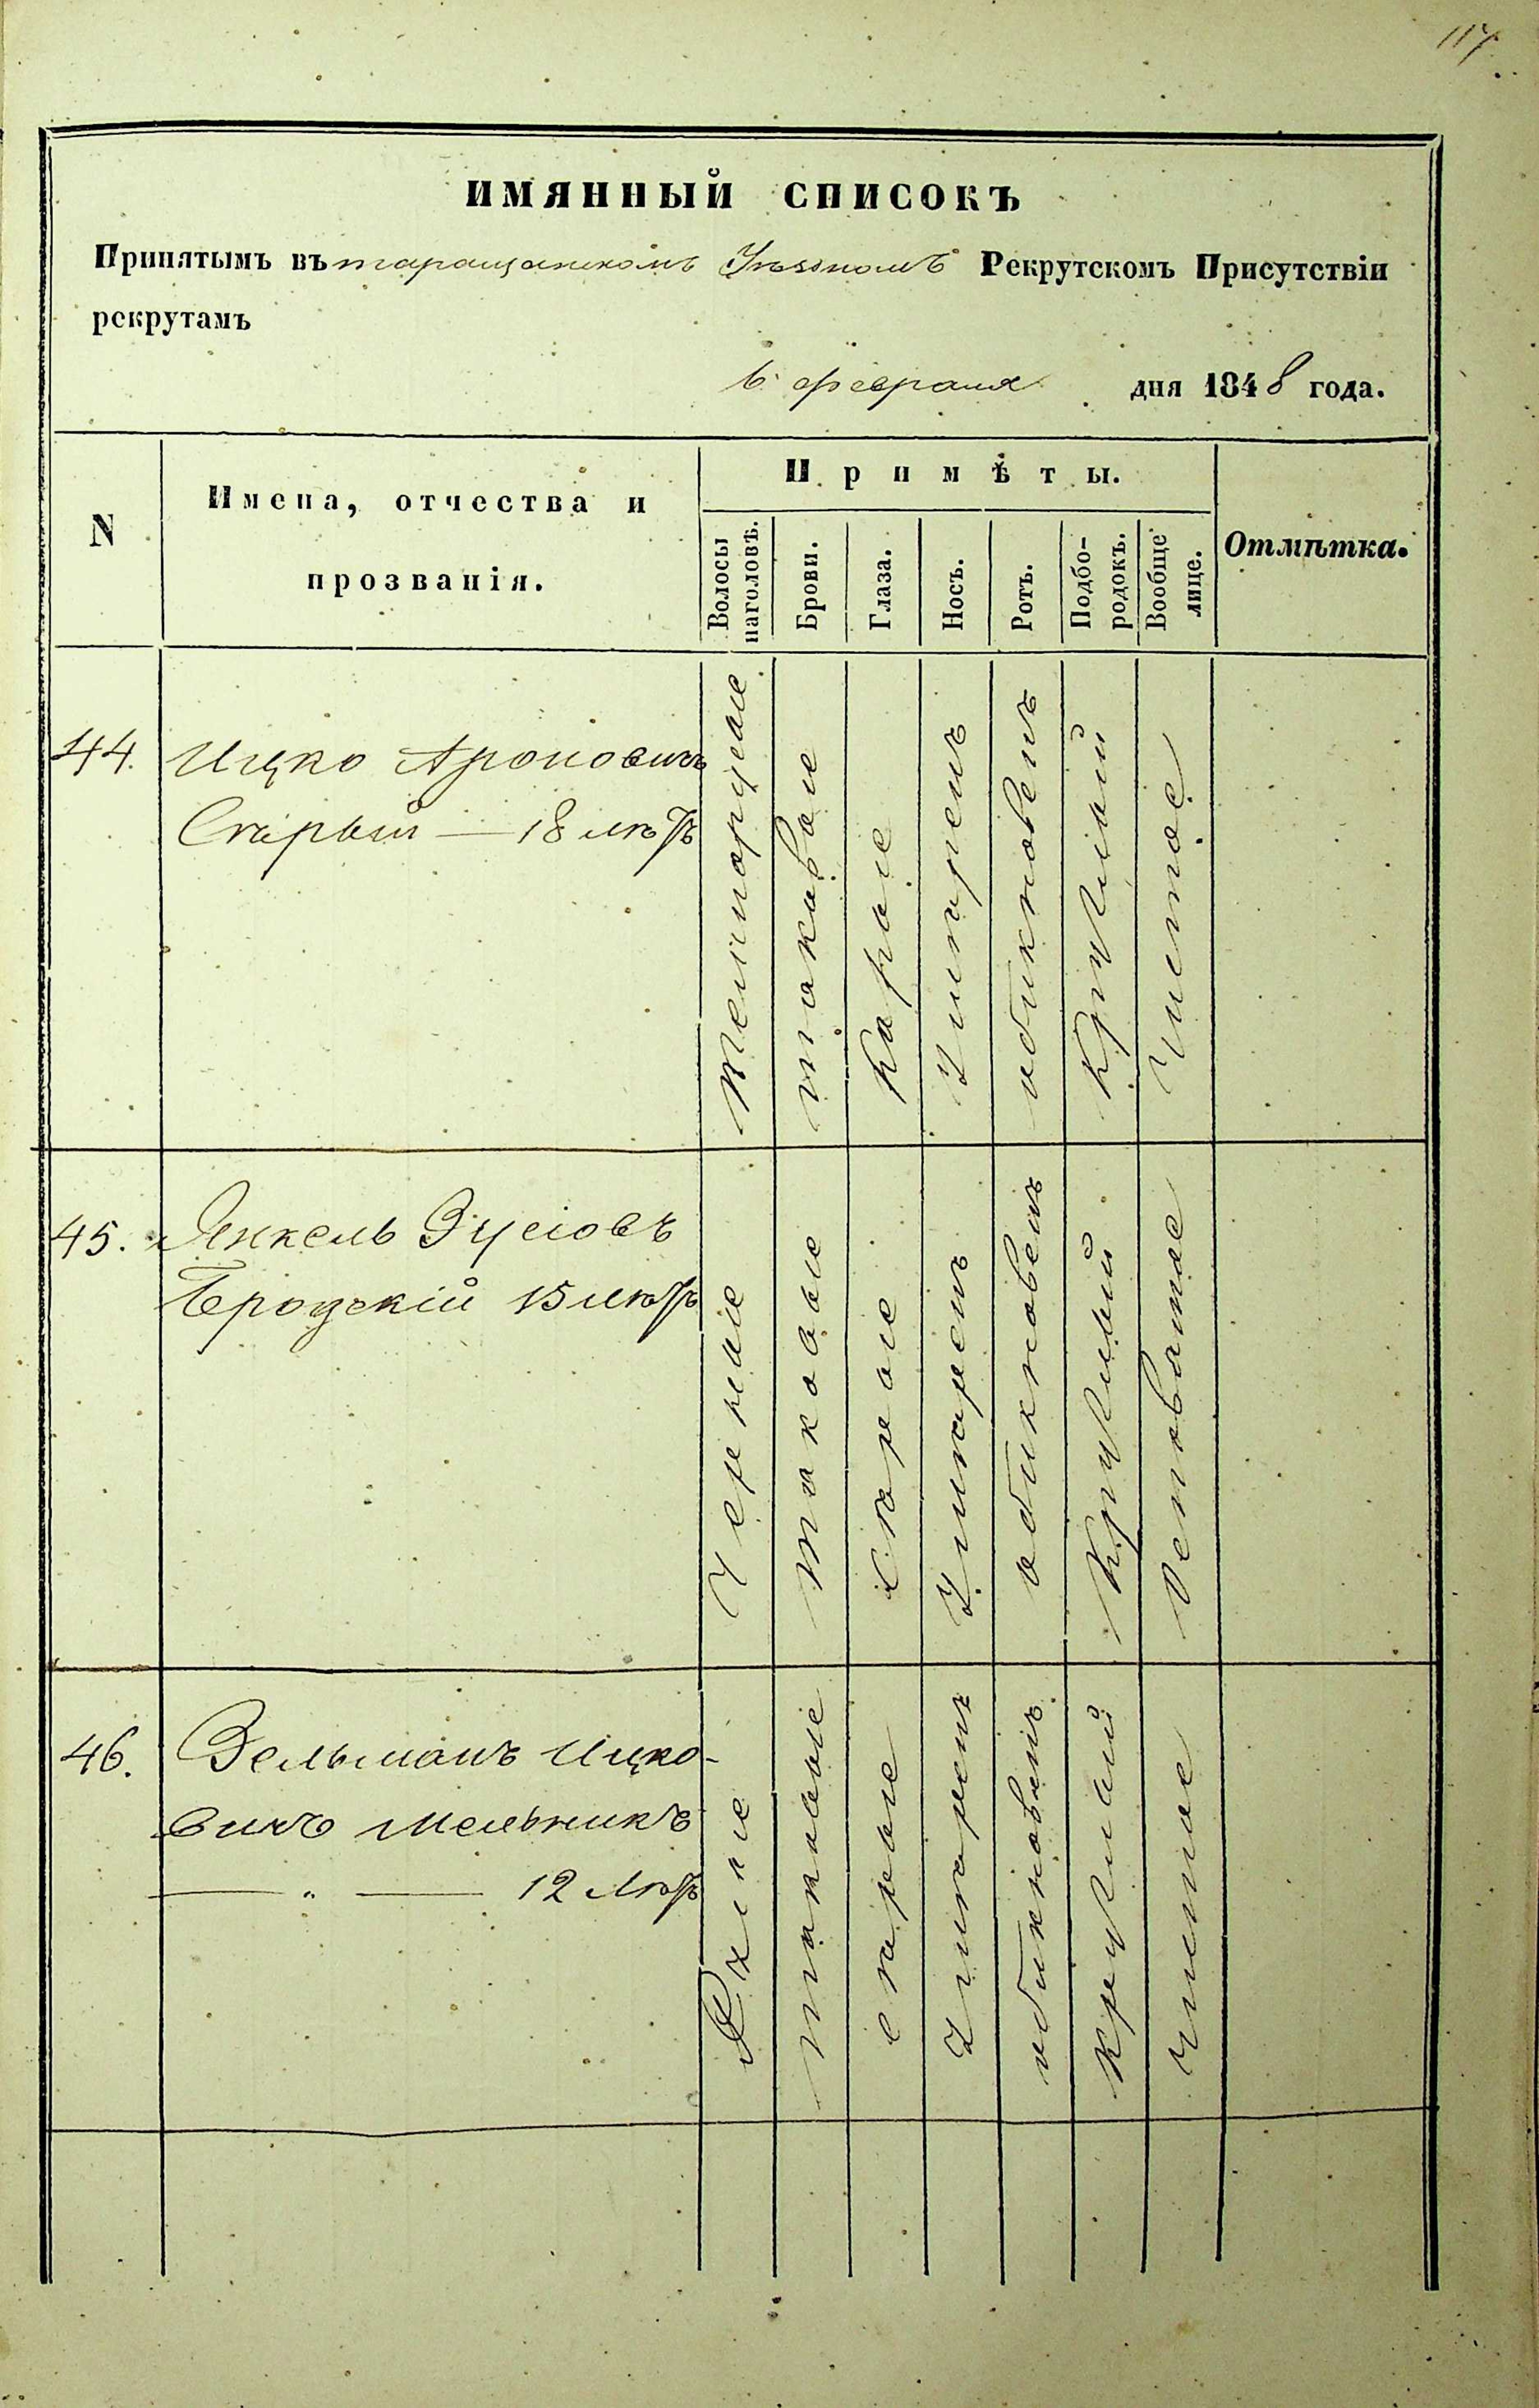 117
ИМЯННЫЙ СПИСОКЪ
Принятымъ въ таращанскомъ Уѣздномъ Рекрутскомъ Присутствіи
рекрутамъ
6 февраля дня 1848 года.
N
Имена, отчества и
прозванія.
Примѣты.
Волосы
наголовѣ.
Брови.
Глаза.
Носъ.
Ротъ.
Подбо-
родокъ.
Вообще
лице.
Отмѣтка.
44. Ицко Ароновичъ
Старый — 18 лѣтъ
таковые
карые
умѣренъ
обикновенъ
круглый
чистое
45. Янкель Зусіовъ
Бродскій 15 лѣтъ
Черные
таковые
сѣрые
умѣренъ
обикновенъ
круглый
46. Зельманъ Ицко-
вичъ Мельникъ
— " — 12 лѣтъ
таковые
сѣрые
умѣренъ
обикновенъ
круглый
чистое